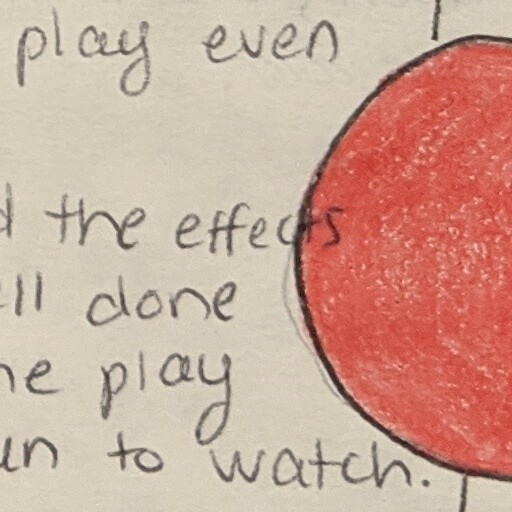 play even
the effects
done
play
to watch.